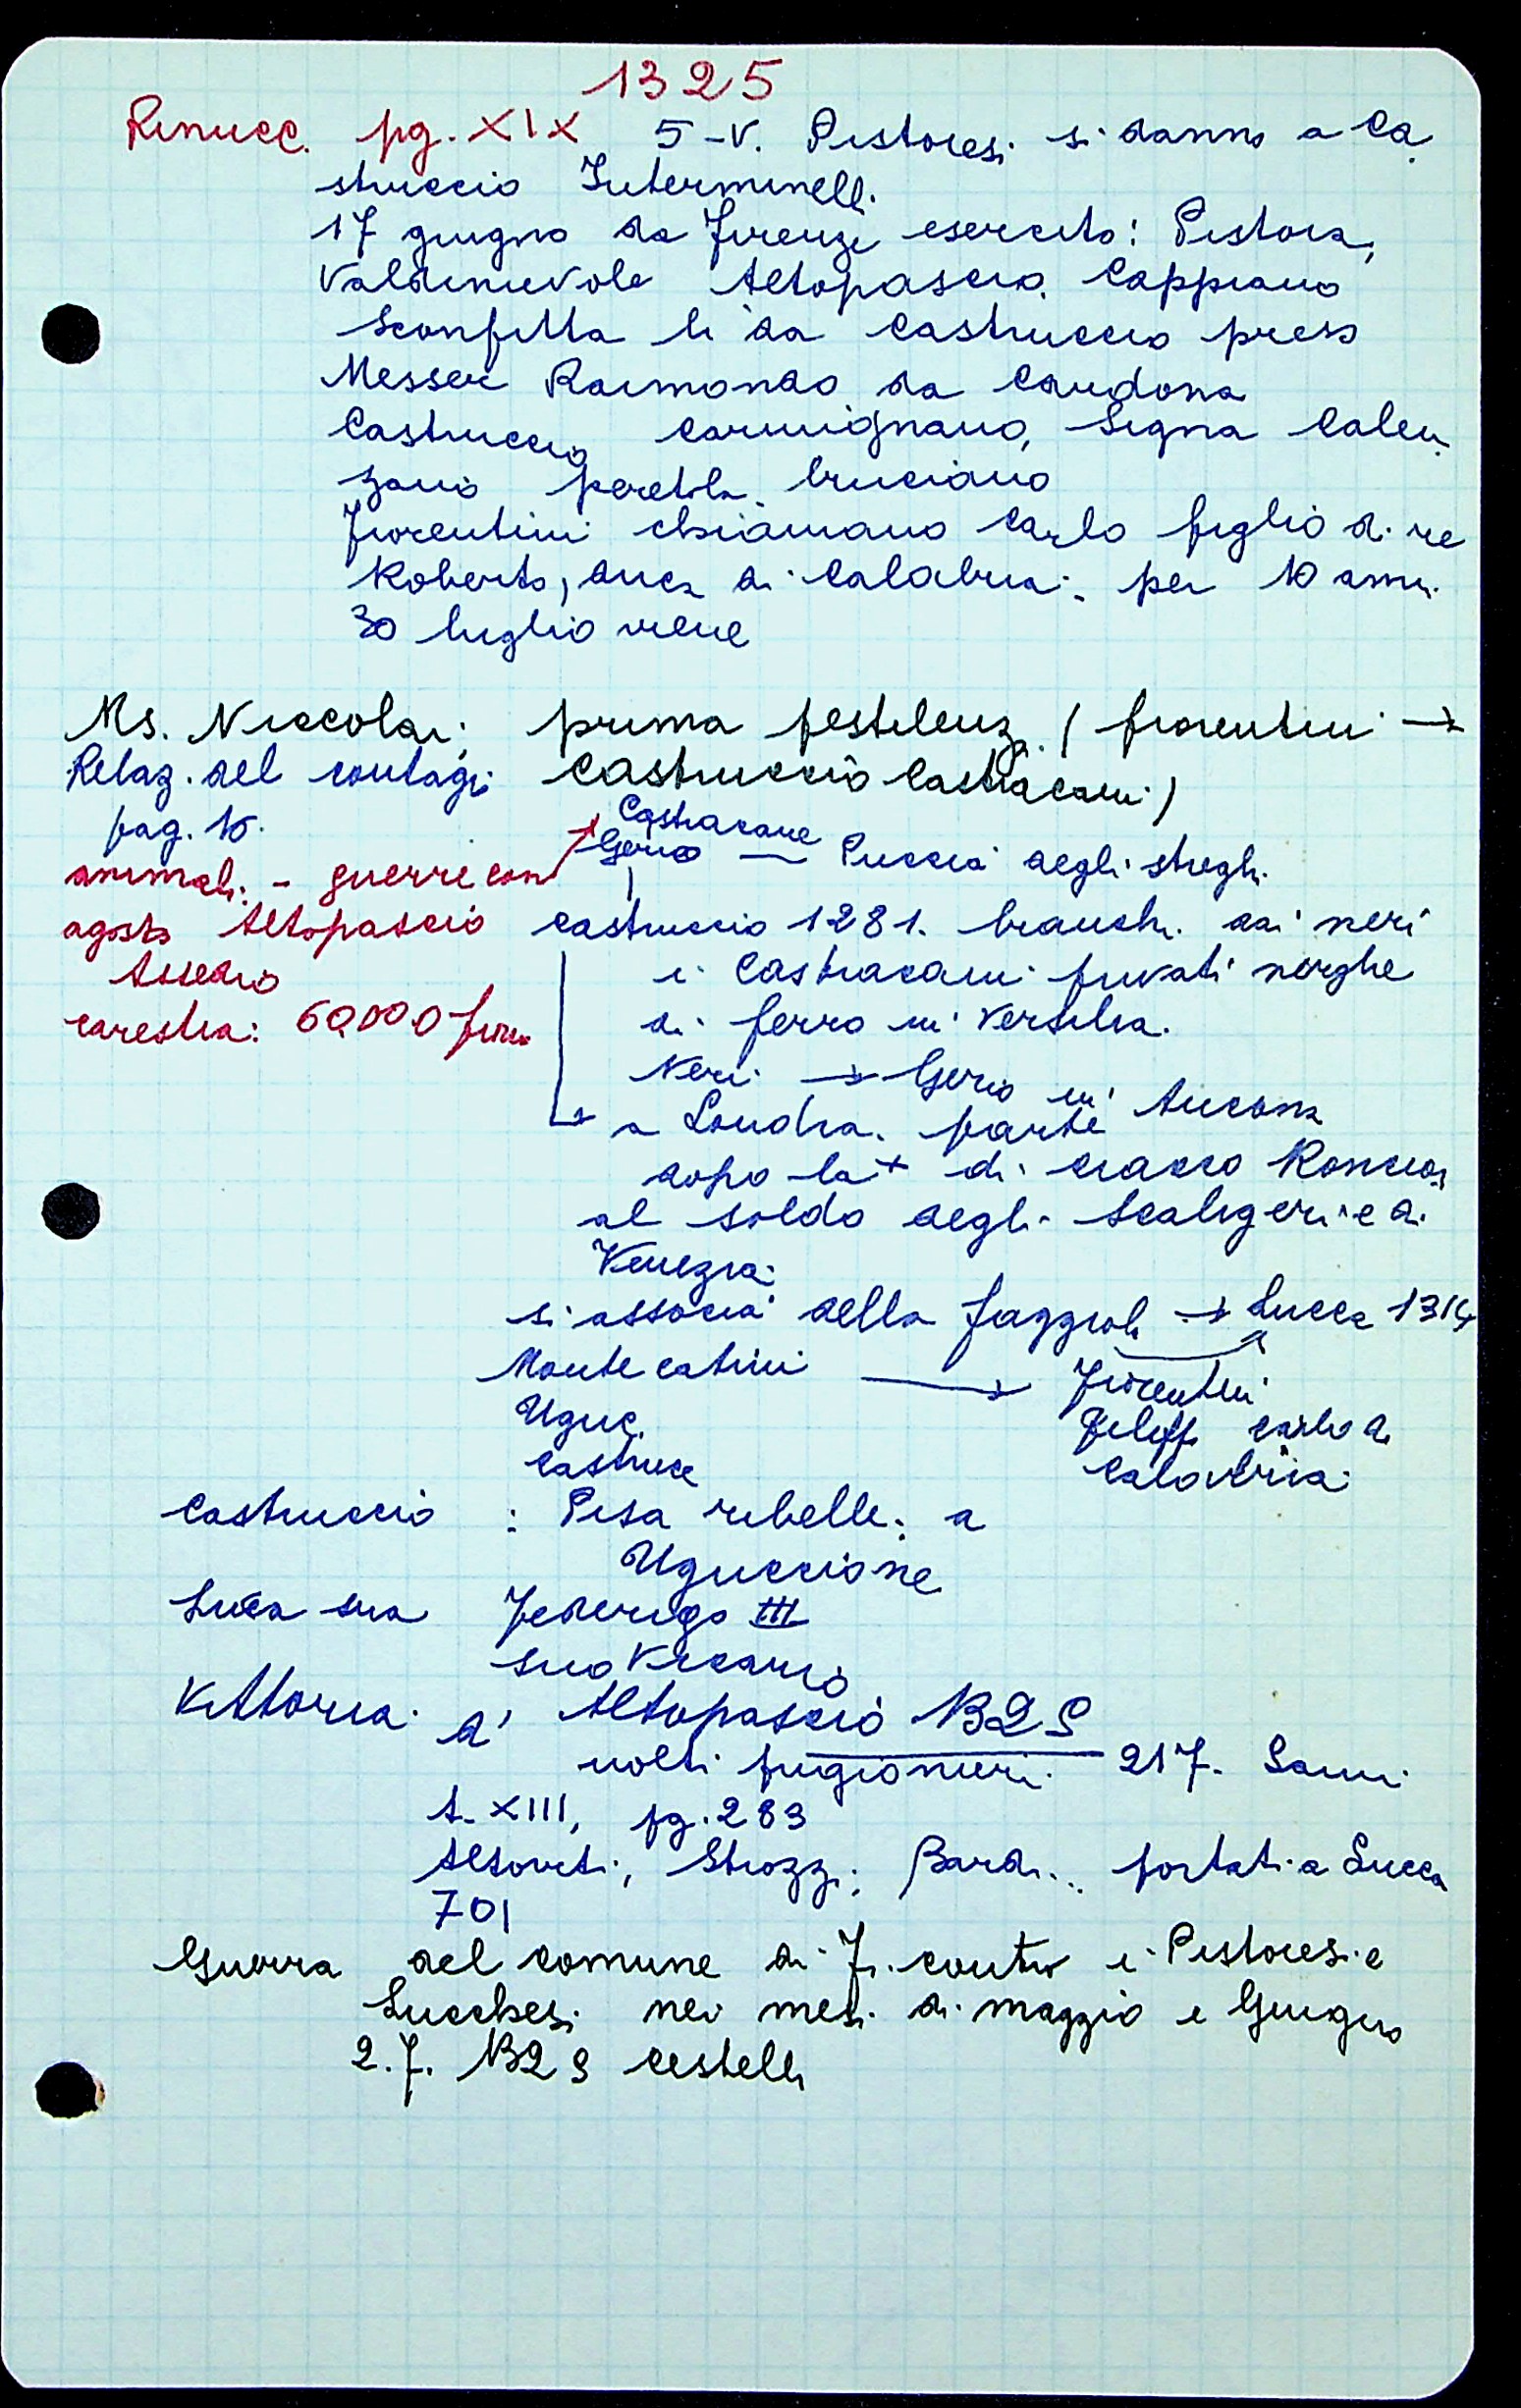 1325
Rinucc. pg. XIX 5-V. Pistoiesi si danno a Ca
struccio Interminelli.
17 giugno da Firenze esercito: Pistoia,
Valdinievole Altopascio, Cappiano
Sconfitta lì da Castruccio preso
Messer Raimondo da Cardona
Castruccio Carmignano, Signa Calen
zano peretola bruciano
Fiorentini chiamano Carlo figlio di re
Roberto, duca di Calabria: per 10 anni.
30 luglio viene
Ms. Niccolai; prima pestilenza. (fiorentini →
Relaz. del contagi Castruccio Castracani)
pag. 15.
Castracane
Gerio — Puccia degli streghi.
animali. - guerre con
agosto Altopascio castruccio 1281. bianchi. dai neri
Assedio i Castracani privati
carestia: 60,000 fior. di ferro in Versilia.
Neri → Gerio in Ancona
a Londra. parte
dopo la + di ciacco Roncioni
al soldo degli Scaligeri e di
Venezia:
si associa della faggiola → Lucca 1314
Montecatini → Fiorentini
Uguc. Filipp. carlo di
Castrucc Calabria:
Castruccio : Pisa ribelle: a
Uguccione
Lucca sua Federigo III
suo Vicario
Vittoria d' Altopascio 1325
molti prigionieri. 217. Sanmi
t. XIII, pg. 283
Altoviti, Strozzi; Bardi... portati a Lucca
701
Guerra del comune di Fi. contro i Pistoiesi e
Lucchesi nei mesi di maggio e Giugno
2.f. 1325 cestelli